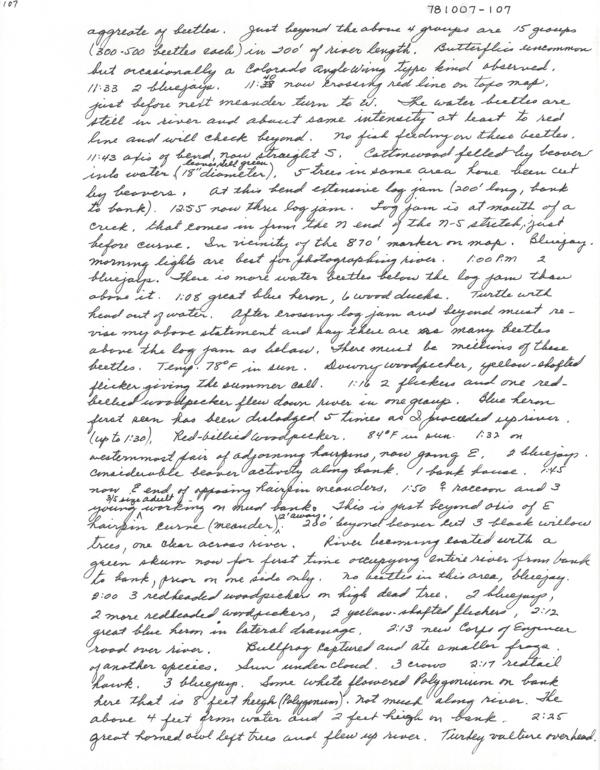 107
781007-107
aggreate of beetles. Just beyond the above 4 groups are 15 groups
(300-500 beetles each) in 200' of river length. Butterflies uncommon
but occasionally a Colorado Anglewing type kind observed.
11:33 2 bluejays. 11:40 now crossing red line on topo map.
just before next meander turn to W. The water beetles are
still in river and about same intensity at least to red
line and will check beyond. No fish feeding on these beetles.
11:43 axis of bend, now straight S. Cottonwood felled by beaver
into water (18" diameter). 5 trees in same area have been cut
by beavers. At this bend extensive log jam (200' long, bank
to bank). 12:55 now thru log jam. Log jam is at mouth of a
creek, that comes in from the N end of the N-S stretch, just
before curve. In vicinity of the 870' marker on map. Bluejay.
morning lights are best for photographing river. 1:00 P.M 2
bluejays. There is more water beetles below the log jam than
above it. 1:08 great blue heron, 6 wood ducks. Turtle with
head out of water. After crossing log jam and beyond must re-
vise my above statement and say there are as many beetles
above the log jam as below. There must be millions of these
beetles. Temp. 78°F in sun. Downy woodpecker, yellow-shafted
flicker giving the summer call. 1:16 2 flickers and one red-
bellied woodpecker flew down river in one group. Blue heron
first seen has been dislodged 5 times as I proceeded up river.
(up to 1:30). Red-billied woodpecker. 84°F in sun. 1:32 on
westernmost pair of adjoining hairpins, now going E. 2 bluejays.
Considerable beaver activity along bank. 1 bank house. 1:45
now E end of opposing hairpin meanders. 1:50 ♀ raccoon and 3
3/5 size adult
young working on mud bank. This is just beyond axis of E
hairpin curve (meander). 200' beyond beaver cut 3 black willow
trees, one clear across river. River becoming coated with a
green skum now for first time occupying entire river from bank
to bank, prior on one side only. No beetles in this area, bluejay.
2:00 3 redheaded woodpeckers on high dead tree. 2 bluejays,
2 more redheaded woodpeckers, 2 yellow-shafted flickers, 2:12
great blue heron in lateral drainage. 2:13 new Corps of Engineer
road over river. Bullfrog captured and ate smaller frogs
of another species. Sun under cloud. 3 crows 2:17 redtail
hawk. 3 bluejays. Some white flowered Polygonium on bank
here that is 8 feet heigh (Polygonium). Not much along river. The
above 4 feet from water and 2 feet heigh on bank. 2:25
great horned owl left trees and flew up river. Turkey vulture overhead.